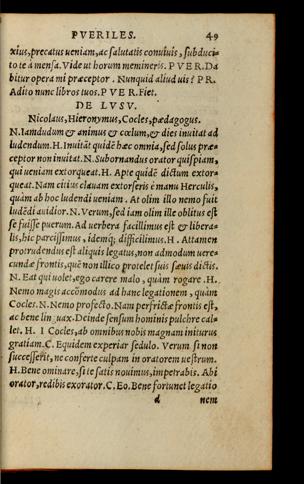 PVERILES. 49
xius, precatus ueniam, ac salutatis conuiuis, subducito
to te à mensa. Vide ut horum memineris. PVER. Da
bitur opera mi præceptor. Nunquid aliud uis? PR.
Adito nunc libros tuos. PVER. Fiet.
DE LVSV.
Nicolaus, Hieronymus, Cocles, pædagogus.
N. Iamdudum & animus & cœlum, & dies inuitat ad
ludendum. H. Inuitāt quidē hæc omnia, sed solus præ=
ceptor non inuitat. N. Subornandus orator quispiam,
qui ueniam extorqueat. H. Apte quidē dictum extor=
queat. Nam citius clauam extorseris è manu Herculis,
quàm ab hoc ludendi ueniam. At olim illo nemo fuit
ludēdi auidior. N. Verum, sed iam olim ille oblitus est
se fuisse puerum. Ad uerbera facillimus est & libera=
lis, hîc parcissimus, idemq́; difficilimus. H. Attamen
protrudendus est aliquis legatus, non admodum uere=
cundæ frontis, quē non illico protelet suis sæuis dictis.
N. Eat qui uolet, ego carere malo, quàm rogare. H.
Nemo magis accōmodus ad hanc legationem, quàm
Cocles. N. Nemo profectò. Nam perfrictæ frontis est,
ac bene linguax. Deinde sensum hominis pulchre cal=
let. H. I Cocles, ab omnibus nobis magnam initurus
gratiam. C. Equidem experiar sedulo. Verum si non
successerit, ne conferte culpam in oratorem uestrum.
H. Bene ominare, si te satis nouimus, impetrabis. Abi
orator, redibis exorator. C. Eo. Bene fortunet legatio
d nem